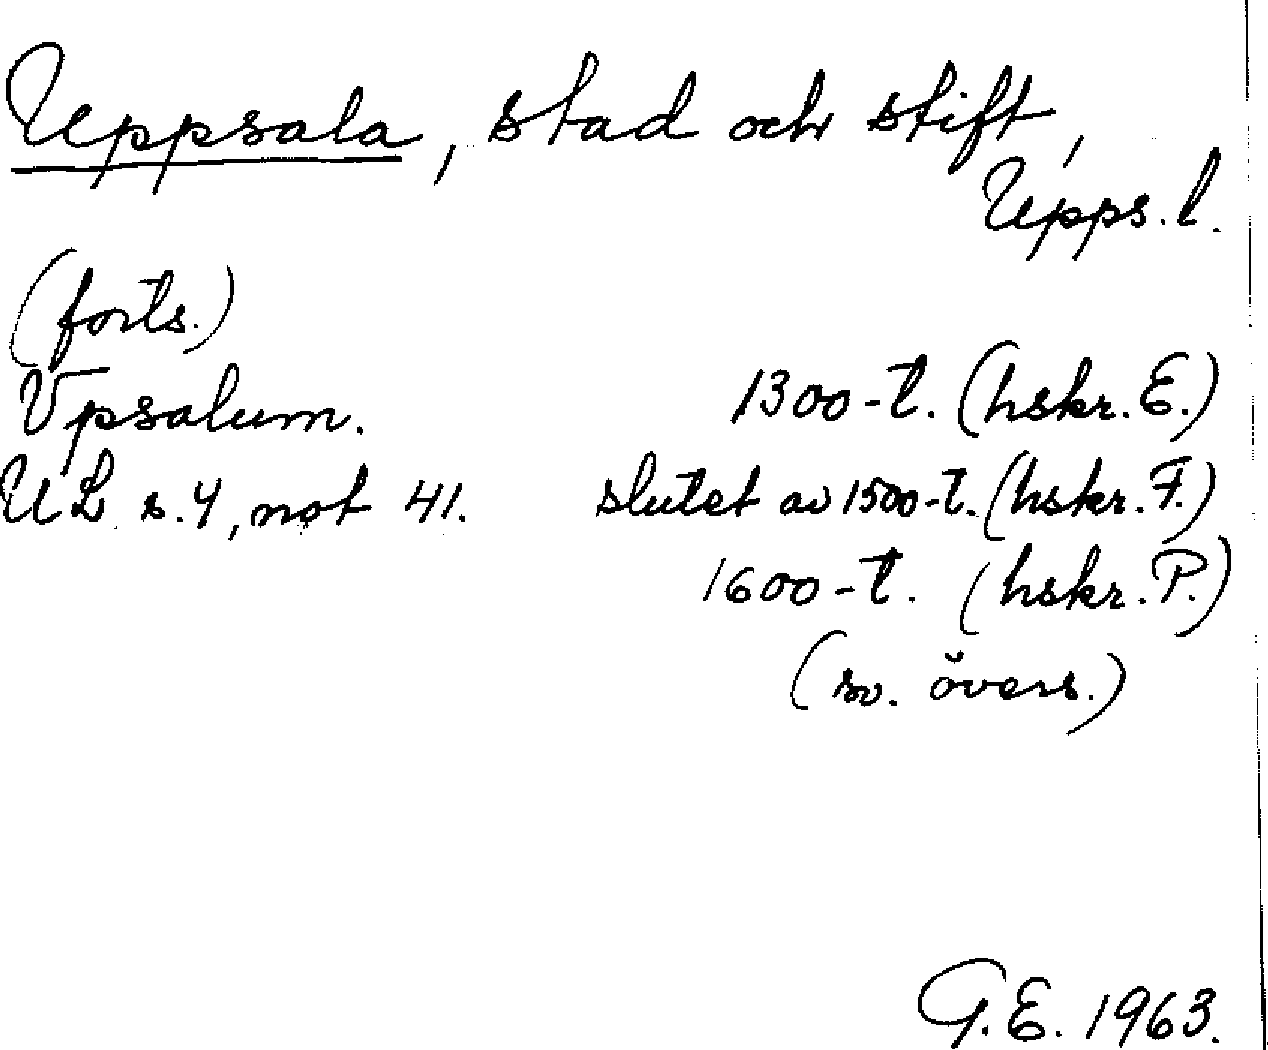 Uppsala, stad och stift,
Upps. l.
(forts.)
Vpsalum. 1300-t. (hskr. E.)
UL s. 4, not 41. slutet av 1500-t. (hskr. F.)
1600-t. (hskr. P.)
(sv. övers.)
G.E. 1963.